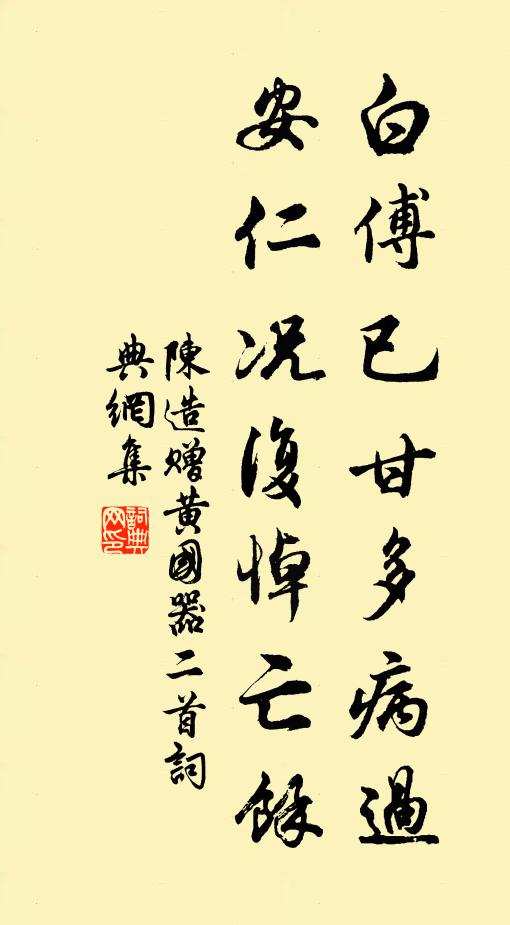 白傅已甘多病過
安仁况復悼亡餘
陳造贈黃國器二首詞
典網集
詞典網印